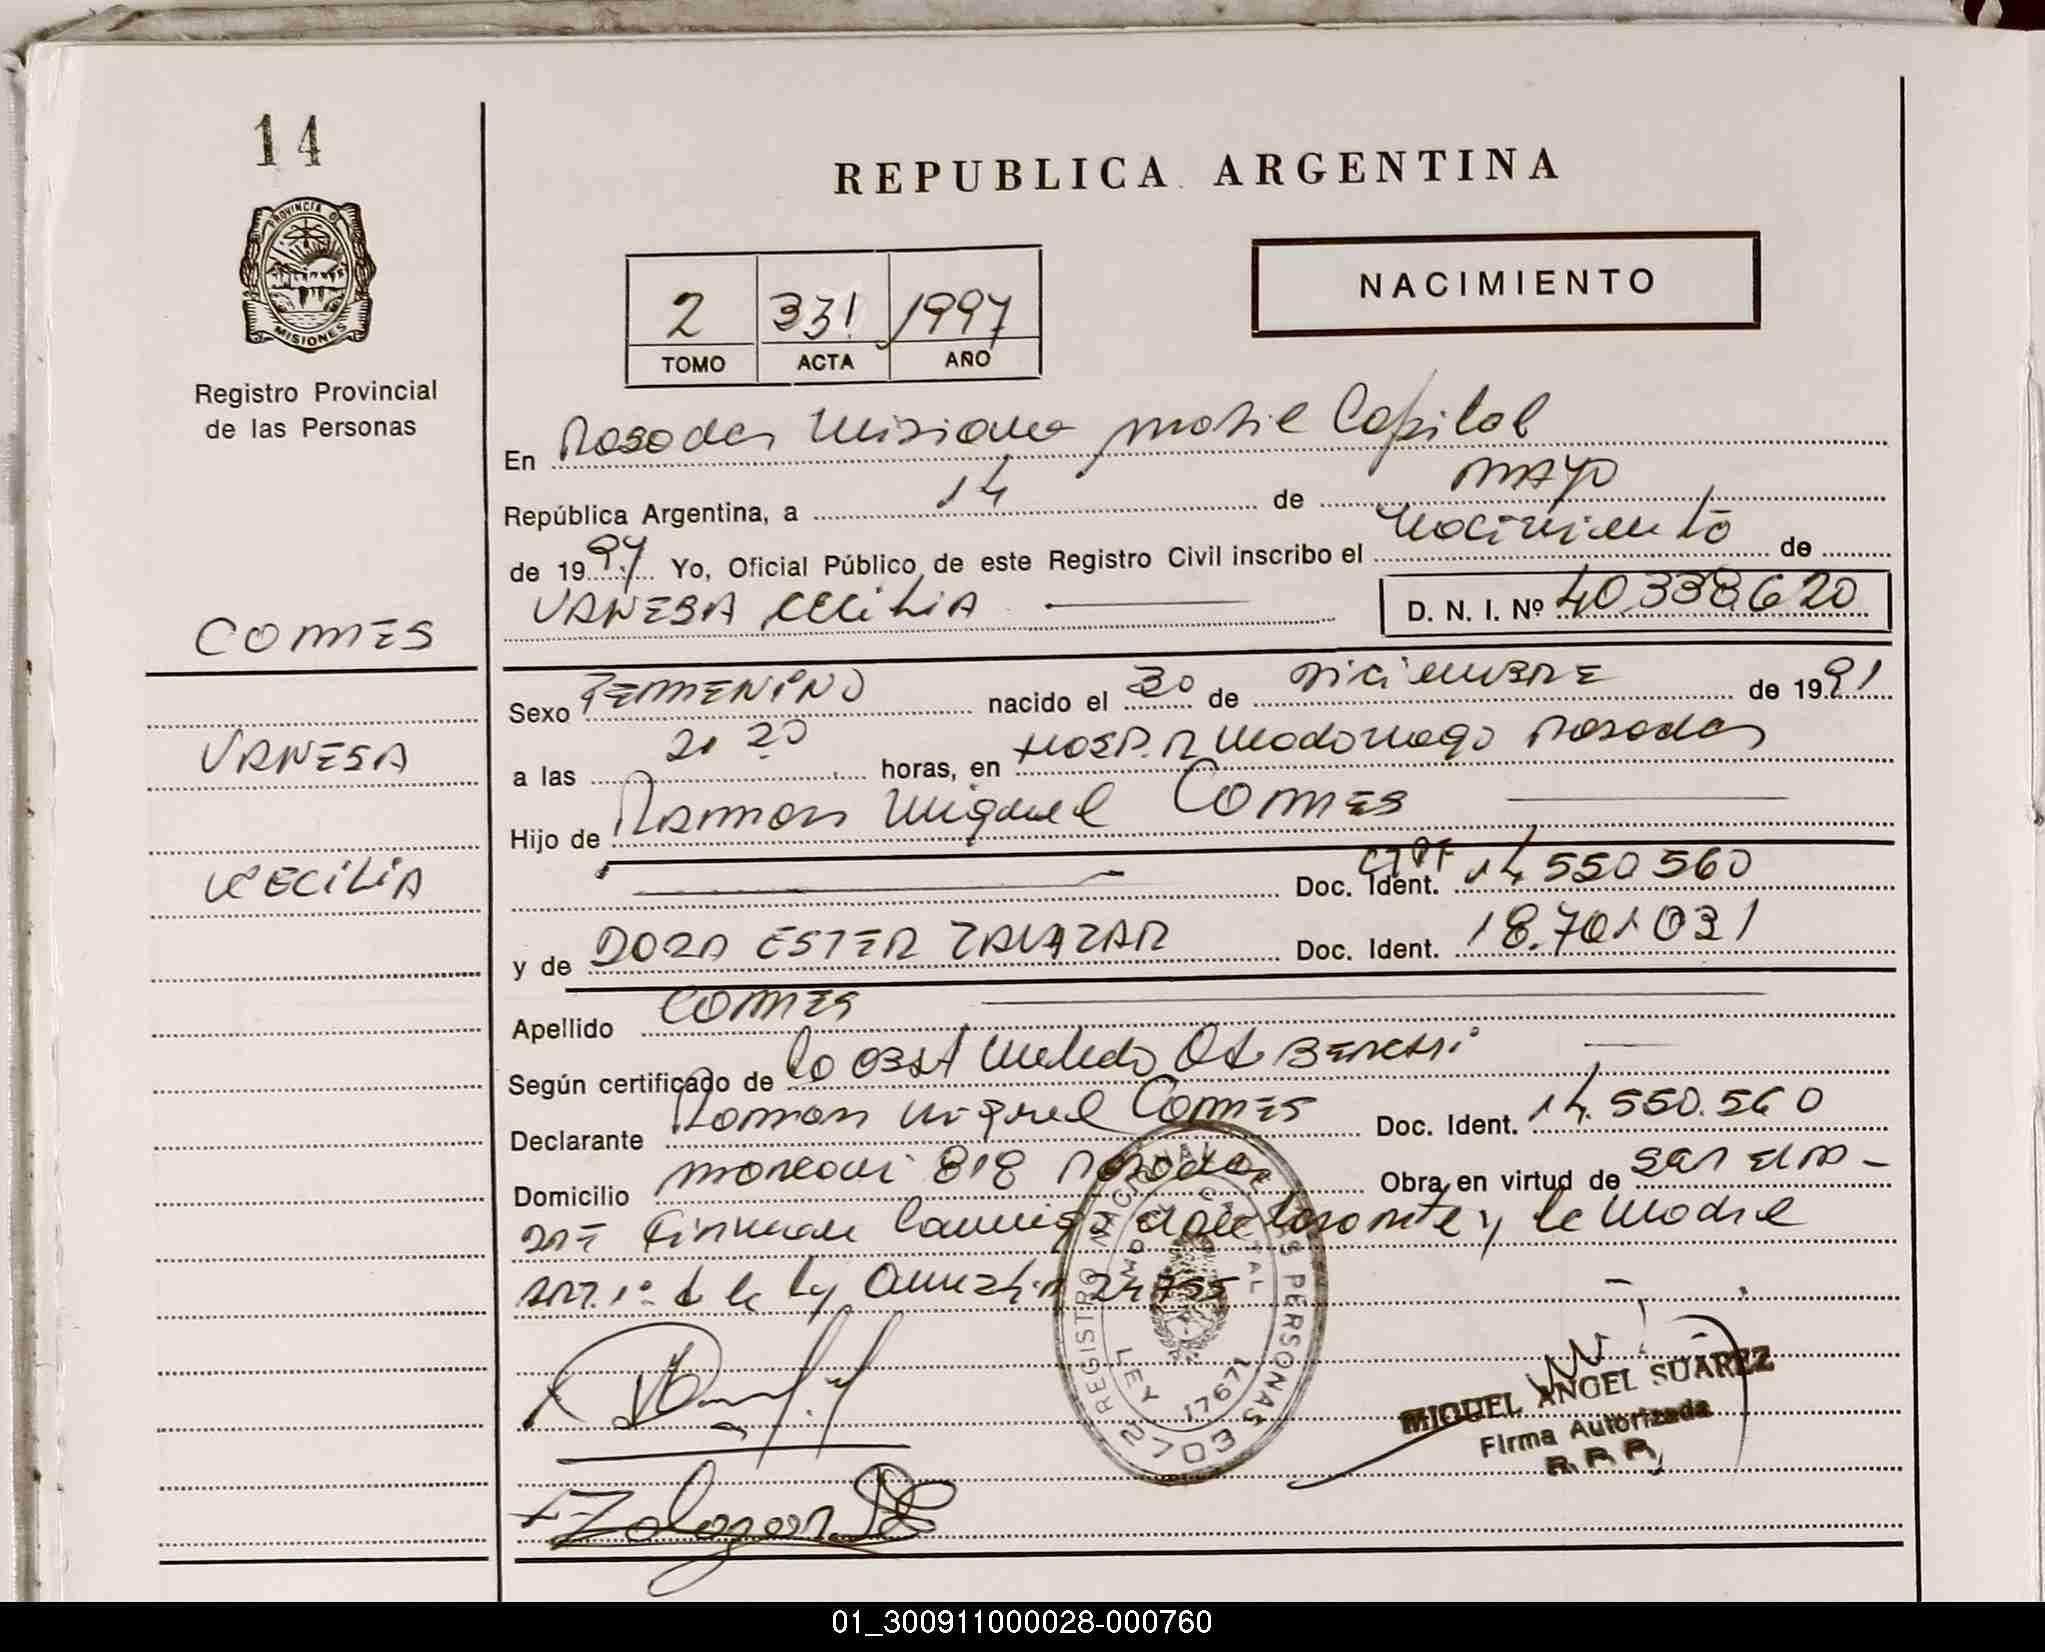 14
PROVINCIA DE
MISIONES
Registro Provincial
de las Personas
REPUBLICA ARGENTINA
NACIMIENTO
2 331 1997
TOMO ACTA AÑO
En Posadas Misiones movil Capital
República Argentina, a 14 de MAYO
de 1997 Yo, Oficial Público de este Registro Civil inscribo el nacimiento de
VANESA CECILIA D. N. I. Nº 40.338.620
COMES
VANESA
CECILIA
Sexo FEMENINO nacido el 30 de DICIEMBRE de 1991
a las 21 20 horas, en HOSP. R Madariaga Posadas
Hijo de RAMON Miguel COMES
Doc. Ident. 14 550 560
y de DORA ESTER ZALAZAR Doc. Ident. 18.701 031
Apellido COMES
Según certificado de la OBST
Declarante Ramon Miguel COMES Doc. Ident. 14.550.560
Domicilio 818 Posadas Obra en virtud de
Firman y la Madre
ART. 1º de la Ley 24755
REGISTRO NACIONAL DE LAS PERSONAS
LEY 17671
2703
MIGUEL ANGEL SUAREZ
Firma Autorizada
R. P. P.
01_300911000028-000760